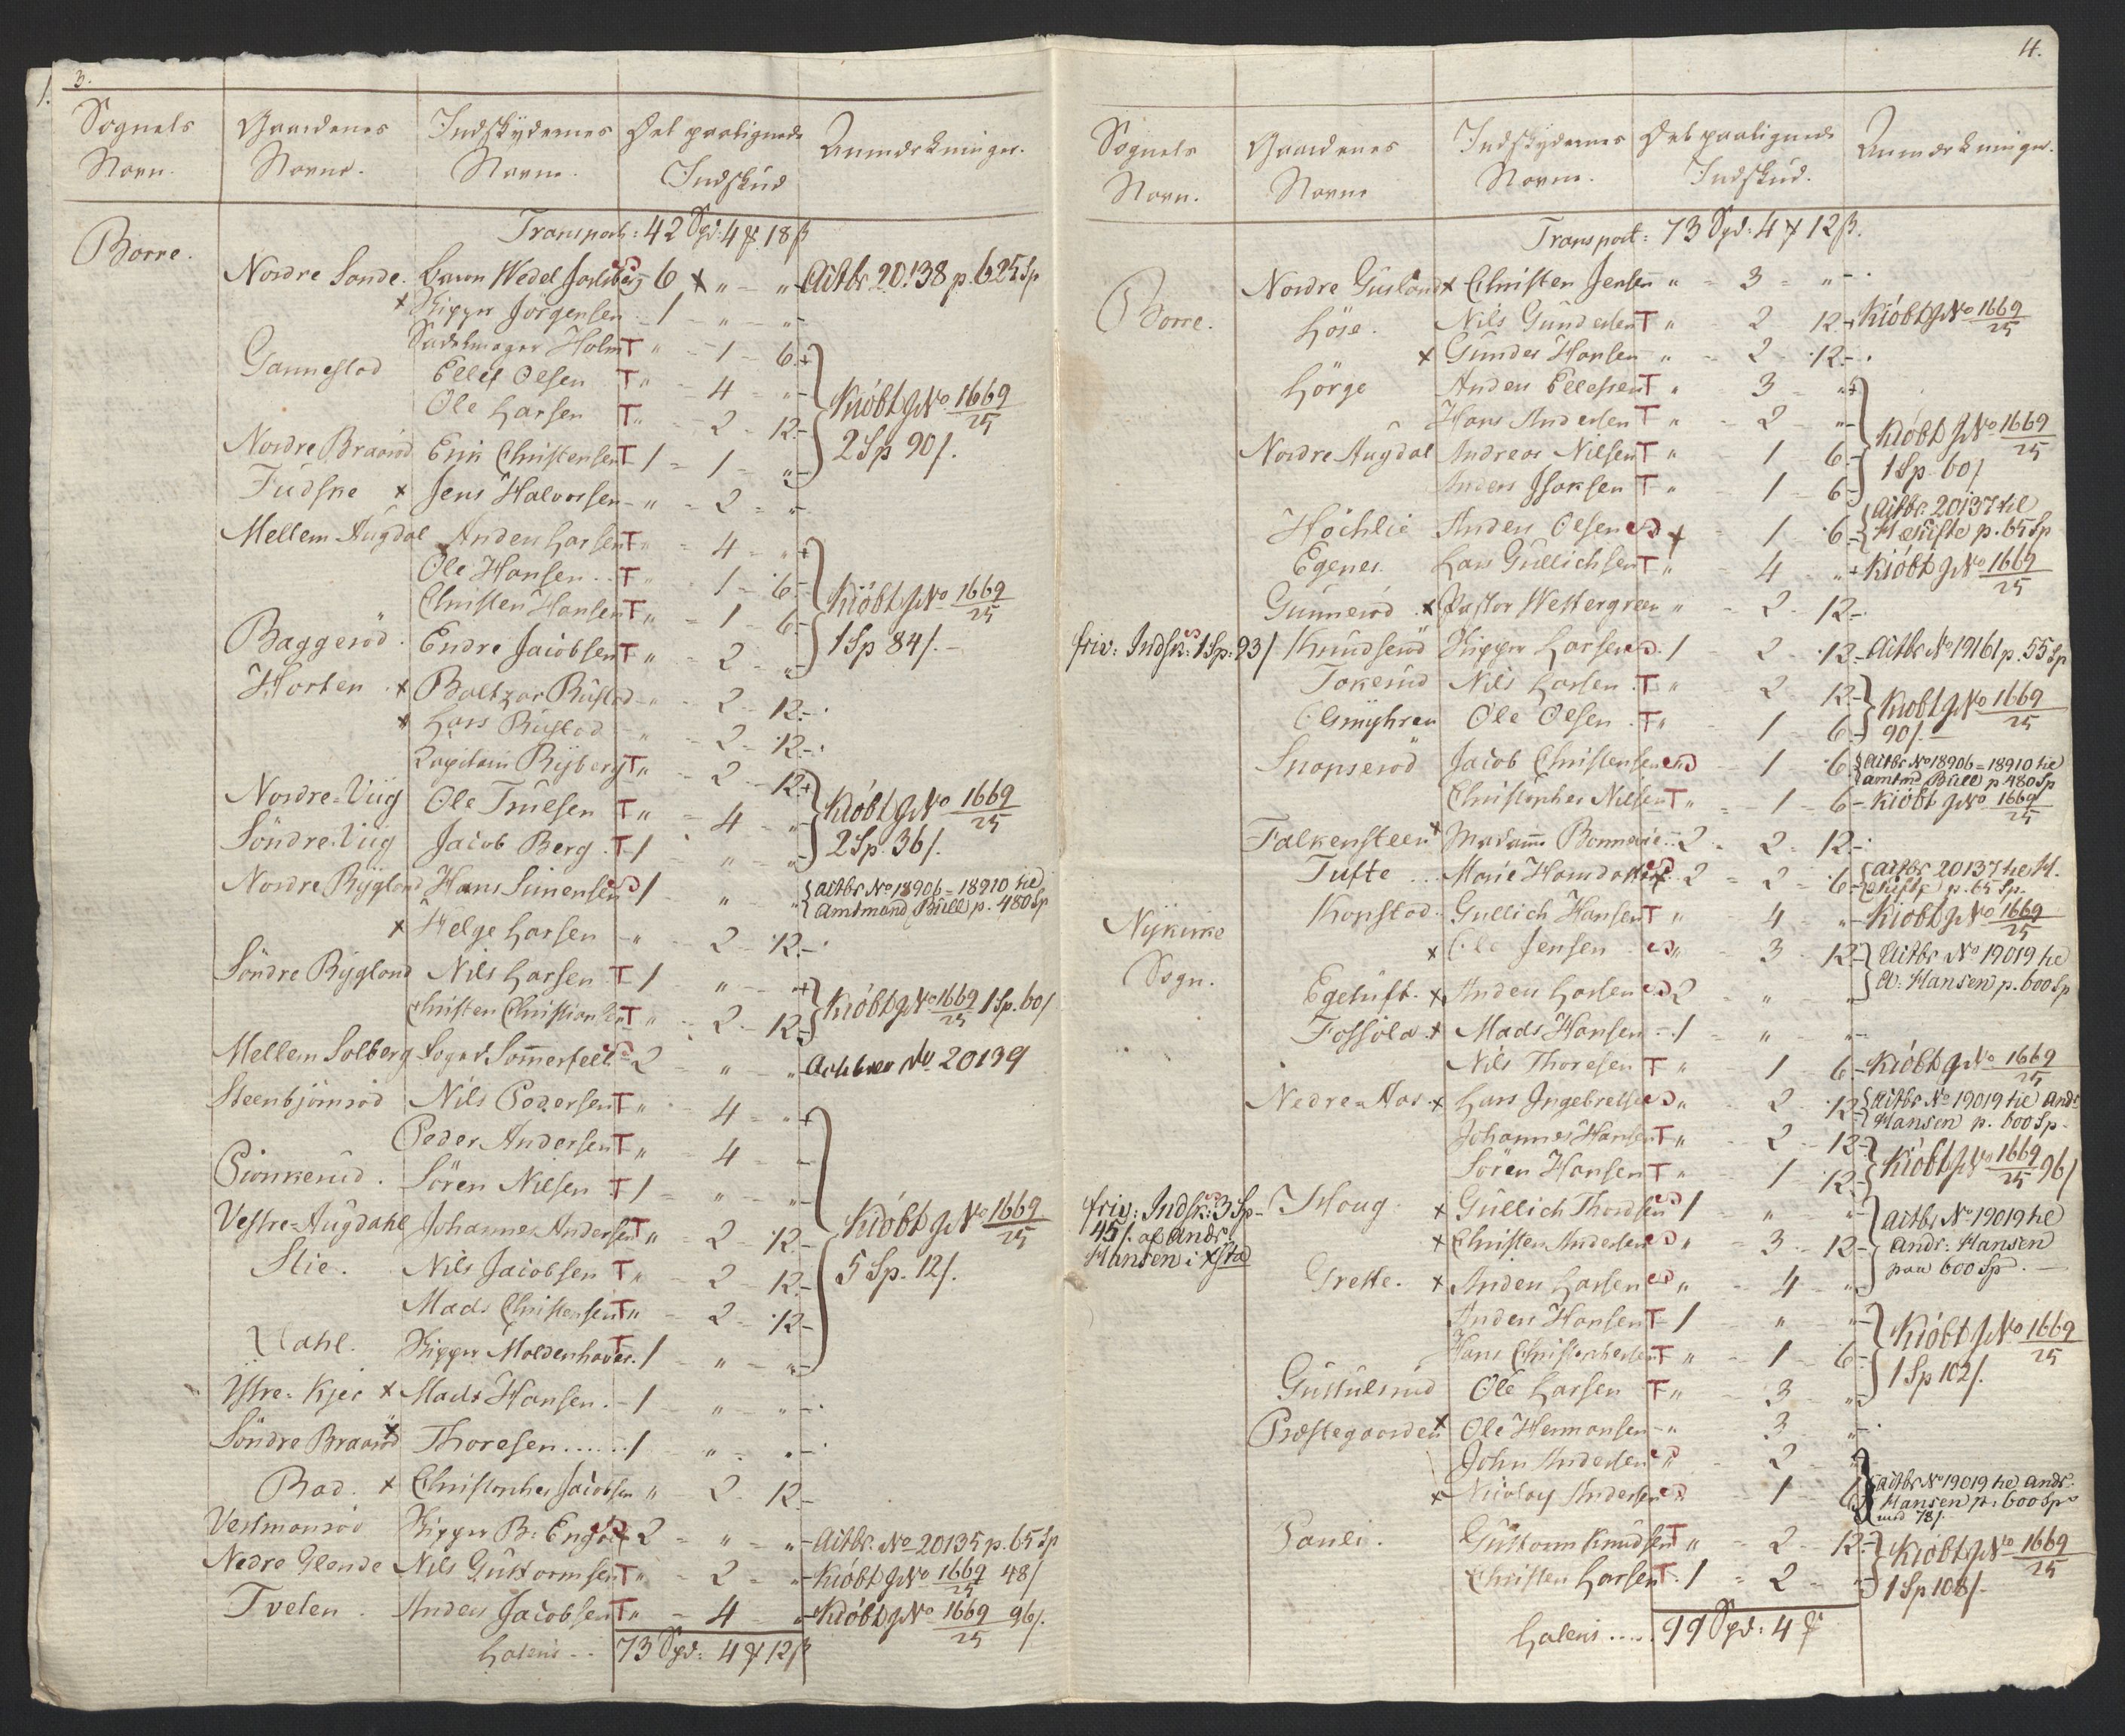 3.
Sognets Navn. Gaardenes Navne. Indskydernes Navne. Det paalignede Indskud Anmærkninger.
Transport: 42 Spd: 4 # 18 ß
Borre.
Nordre Sande. Baron Wedel Jarlsberg 6 " " Actbr. 20138 p. 625 Sp
x Skipper Jörgensen 1 " "
Sadelmager Holm T " 1 6
Gannestad Ellef Olsen T " 4 "
Ole Larsen T " 2 12 Kiöbt J No 1669/25 2 Sp 90 ß.
Nordre Braarød Erik Christensen T 1 1 "
Fudske x Jens Halvorsen " 2 "
Mellem Augdal Anders Larsen T " 4 "
Ole Hansen T " 1 6
Christen Hansen T " 1 6 Kiöbt J No 1669/25 1 Sp 84 ß.
Baggeröd. Endre Jacobsen T " 2 "
Horten x Baltzar Rustad " 2 12
x Lars Rustad " 2 12
Capitain Ryberg T " 2 12
Nordre Viig Ole Truelsen T " 4 " Kiöbt J No 1669/25 2 Sp. 36 ß.
Söndre Viig Jacob Berg T 1 " "
Nordre Rygland Hans Simensen 1 " " Actbr No 18906 = 18910 til Amtmand Bull p. 480 Sp
x Helge Larsen " 2 12
Söndre Rygland Nils Larsen T 1 " "
Christen Christiansen T " 2 12 Kiöbt J No 1669/25 1 Sp. 60 ß
Mellem Solberg Foged Sommerfelt 2 " " Actbrev No 20139
Steenbjörnröd Nils Pedersen T " 4 "
Peder Andersen T " 4 "
Pionkerud. Sören Nilsen T 1 " "
Vestre=Augdahl Johannes Andersen T " 2 12 Kiöbt J No 1669/25 5 Sp. 12 ß.
Slie. Nils Jacobsen T " 2 12
Mads Christensen T " 2 12
Dahl. Skipper Moldenhauer T 1 " "
Ystre=Kjer x Mads Hansen. 1 " "
Söndre Braaröd x Thoresen...... 1 " "
Rad. x Christopher Jacobsen " 2 12
Vestmansröd Skipper B: Engö 2 " " Actbr. No 20135 p. 65 Sp
Nedre Glende Nils Guttormsen T " 2 " Kiöbt J No 1669/25 48 ß
Tvelen. Anders Jacobsen T " 4 " Kiöbt J No 1669/25 96 ß.
Lateris.. 73 Spd: 4 # 12 ß
4.
Sognets Navn. Gaardenes Navne Indskydernes Navne. Det paalignede Indskud. Anmærkninger.
Transport: 73 Spd: 4 # 12 ß.
Borre.
Nordre Gusland x Christen Jensen " 3 "
Löse. Nils Gundersen T " 2 12 Kiöbt J No 1669/25
x Gunder Hansen " 2 12
Lörge Anders Ellefsen T " 3 "
Hans Andersen T " 2 "
Nordre Augdal Andreas Nilsen T " 1 6 Kiöbt J No 1669/25 1 Sp 60 ß
Anders Isaksen T " 1 6
Höchlie Anders Olsen 1 6 Actbr. 20137 til H. Skifte p. 65 Sp
Egenes. Lars Gullichsen T " 4 " Kiöbt J No 1669/25
Gunneröd x Pastor Westergreen " 2 12
friv: Indsk: 1 Sp: 93 ß Knudseröd Skipper Larsen 1 2 12 Actbr No 19161 p. 55 Sp
Tokerud Nils Larsen T " 2 12 Kiöbt J No 1669/25 90 ß.
Elmyhren Ole Olsen T " 1 6
Snapseröd Jacob Christensen 1 6 Actbr No 18906 = 18910 til Amtmd Bull p 480 Sp
Christopher Nilsen T " 1 6 Kiöbt J No 1669/25
Falkensteen x Madame Bonnevie 2 2 12
Tufte Marie 2 2 6 Actbr 20137 til H. Skifte p. 65 Sp.
Nykirke Sogn.
Kopstad Gullich Hansen T " 4 " Kiöbt J No 1669/25
x Ole Jensen " 3 12 Actbr No 19019 til A. Hansen p. 600 Sp
Egetuft. x Anders Larsen 2 " "
Fossöla x Mads Hansen 1 " "
Nils Thoresen T " 1 6 Kiöbt J No 1669/25
Nedre=Aas x Lars Ingebretsen " 2 12 Actbr No 19019 til Andr Hansen p. 600 Sp
Johannes Hansen T " 2 12
Sören Hansen T " 1 12 Kiöbt J No 1669/25 96 ß
friv: Indsk: 3 Sp 45 ß. af Andr Hansen i xstad
Houg. x Gullich Thordsen 1 " " Actbr No 19019 til Andr: Hansen paa 600 Sp.
x Christen Andersen " 3 12
Grette. x Anders Larsen " 4 "
Anders Hansen T 1 " "
Hans Christophersen T " 1 6 Kiöbt J No 1669/25 1 Sp 102 ß.
Guttulsrud Ole Larsen T " 3 "
Præstegaarden x Ole Hermansen " 3 "
John Andersen " 2 "
x Nicolay Andersen 1 6 Actbr No 19019 til Andr. Hansen p. 600 Sp med 78 ß.
Pauli. Guttorm Knudsen T " 2 12
Christen Larsen T 1 2 " Kiöbt J No 1669/25 1 Sp 108 ß
Lateris..... 99 Spd: 4 #